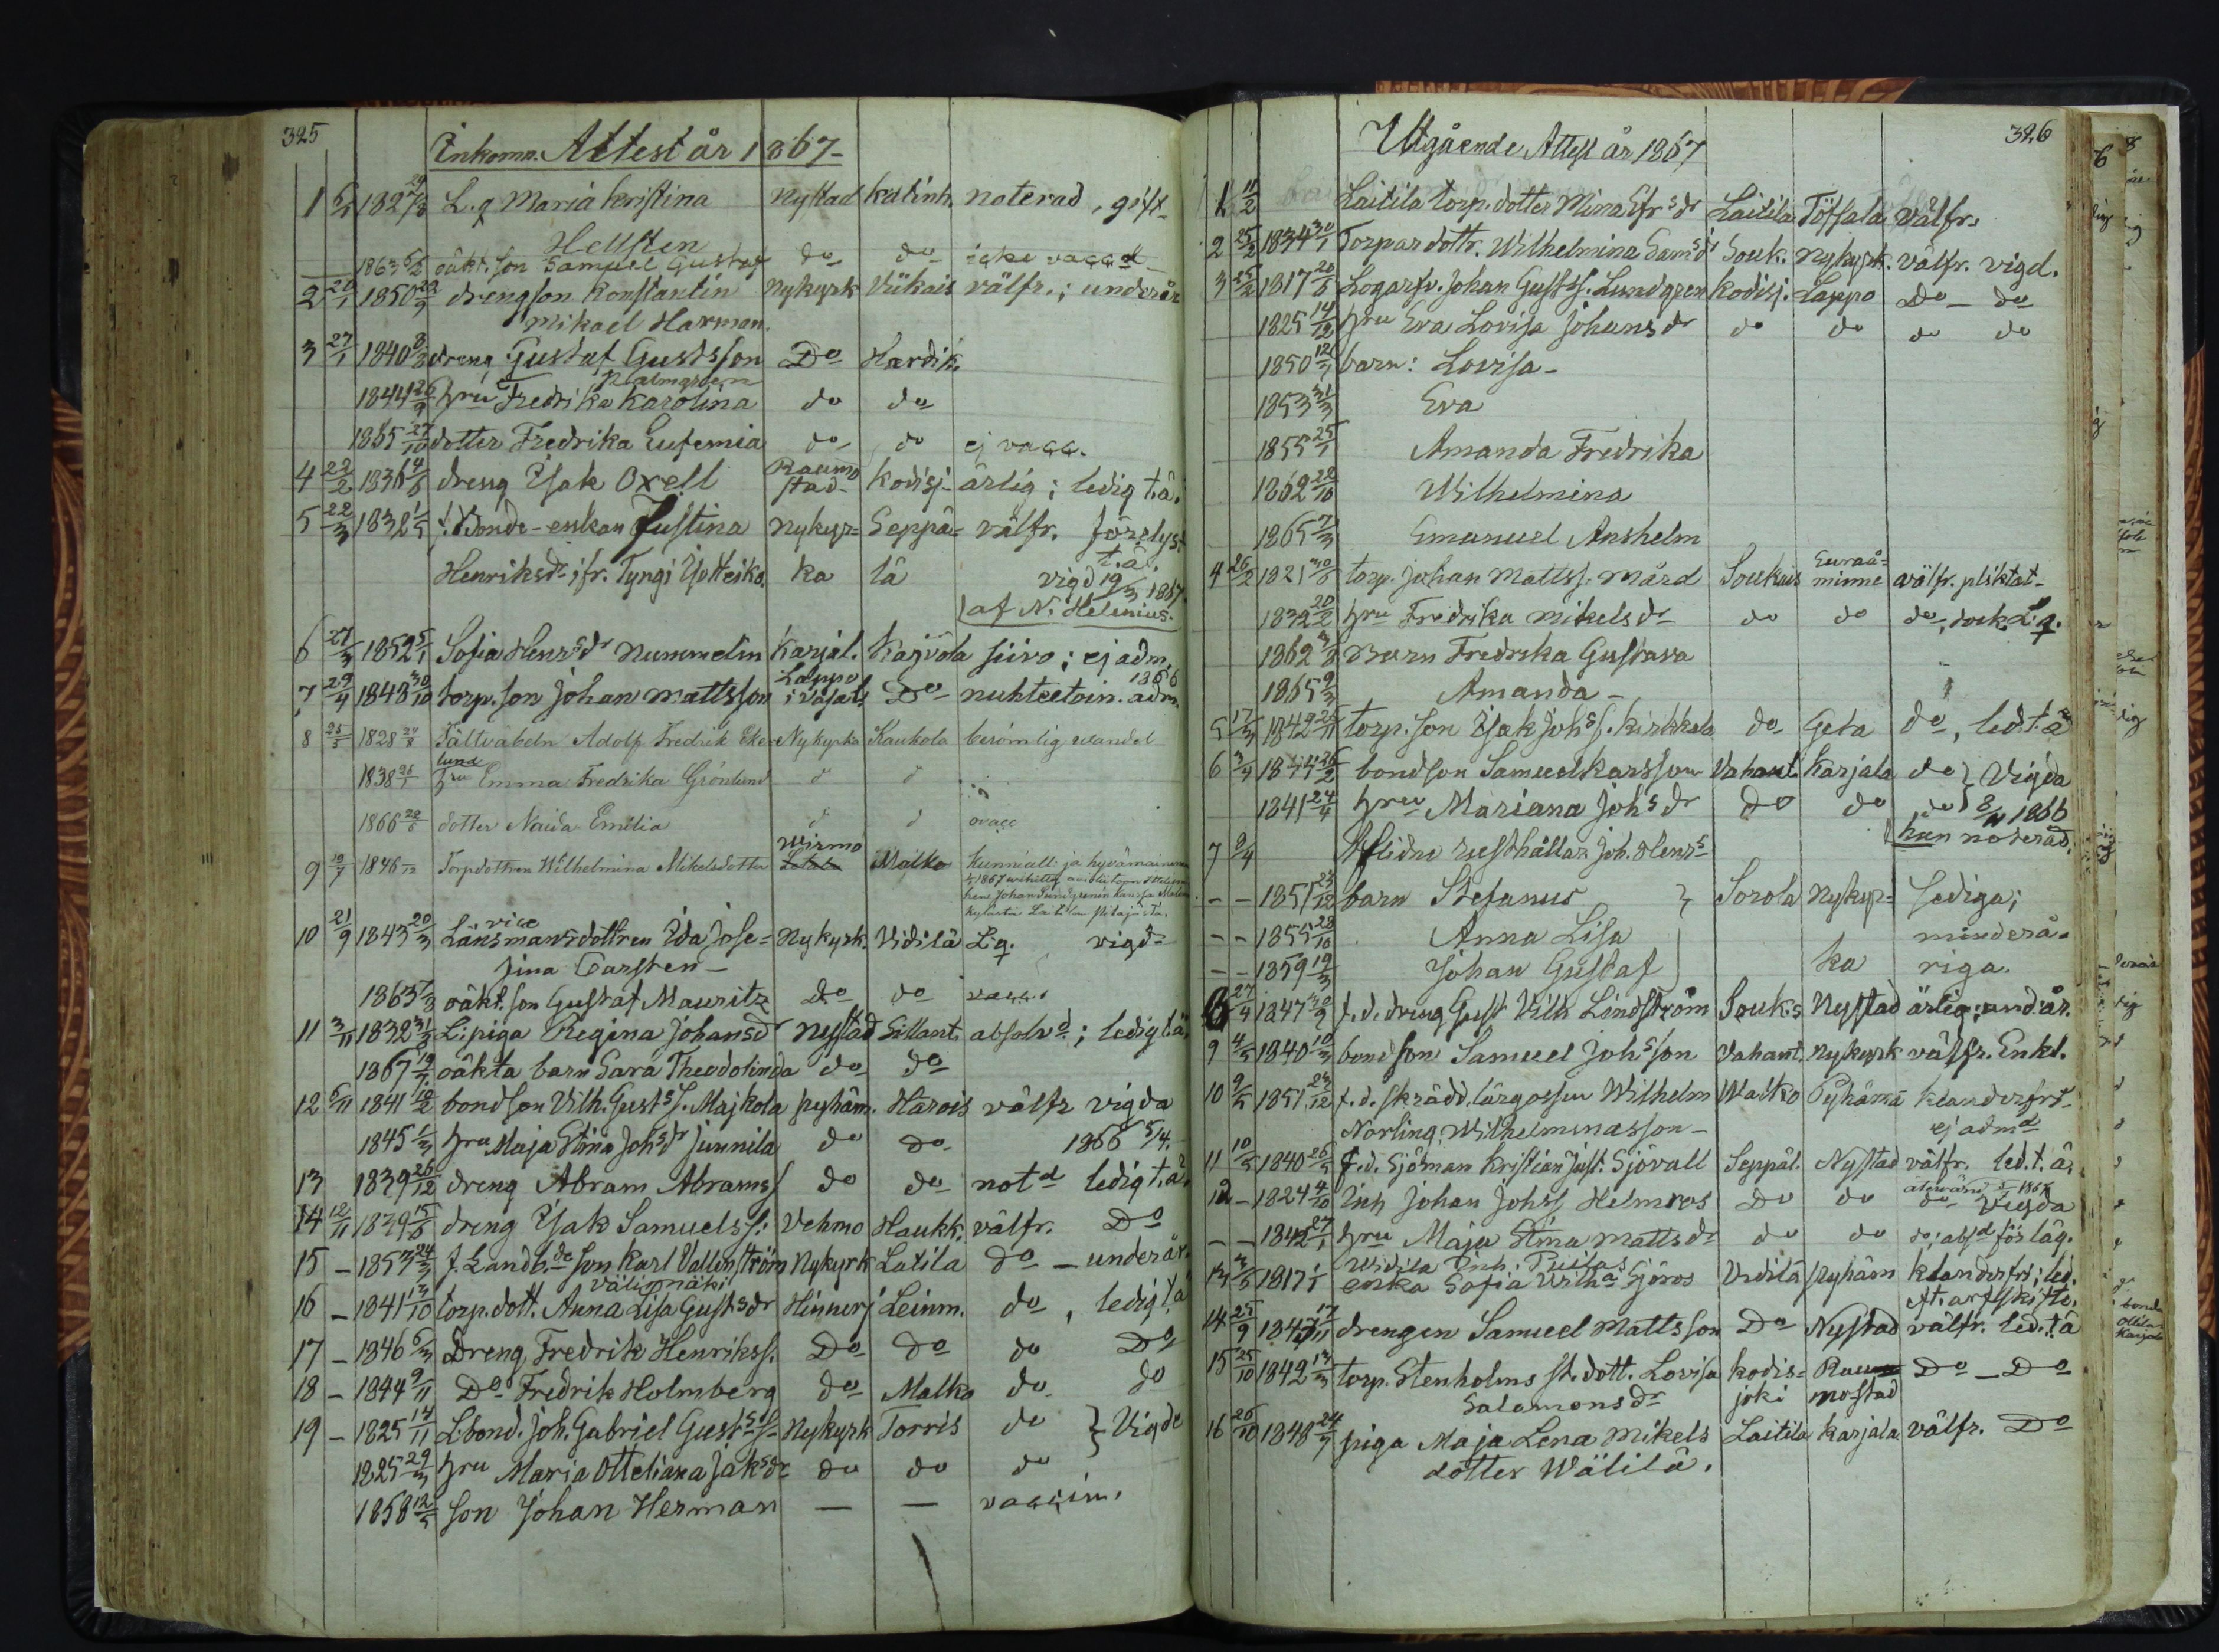 325
Inkomn. Attest år 1867-
1 6/1 1827 24/3 L.q Maria Kristina Nystad Katinh. noterad, gift
Hellsten
1863 6/2 oäkt. son Samuel Gustaf do do icke vacc
2 20/1 1850 22/9 drengson Konstantin Nykyrk Viikais välfr.; underår
Mikael Harman.
3 27/1 1840 8/3 dreng Gustaf Gustsson Do Hardik.
Palmgren
1844 26/9 hru Fredrika Karolina do do
1865 27/10 dotter Fredrika Eufemia do do ej vacc.
4 22/2 1836 4/6 dreng Isak Oxell Raumo stad- Kodisj- ärlig; ledig t.ä.
5 22/3 1832 1/5 f. Bonde-enkan Justina Nykyr= Seppä= välfr. förelyst
t.ä.
Henriksdr ifr. Tyngi Yotteiko. ka lä vigd 19/3 1867
af N. Helenius.
6 27/3 1852 5/1 Sofia Henrsdr Nummelin Karjal. Kajvola siivo; ej adm.
7 29/4 1848 30/10 torp. son Johan Mattsson Lappo i Vasal. Do nuhteetoin. adm. 1866
8 25/5 1828 24/8 Fältvabeln Adolf Fredrik Eke- Nykyrko Kaukola berömlig vandel
lund
1838 26/1 hru Emma Fredrika Grönlund d d
1866 20/6 dotter Naida Emilia d d ovacc
9 19/7 1846 /12 Torpdottren Wilhelmina Mikelsdotter Wirmo Malko kunniall. ja hyvämainen
10 21/9 1843 20/3 vice Länsmansdottren Ida Jose= Nykyrk. Vidilä L.q. vigd-
fina Carsten-
1863 7/3 oäkt. son Gustaf Mauritz Do do vacc.
11 3/11 1832 31/8 L.piga Regina Johansdr Nystad Sillant. absolvd; ledig t.ä
1867 19/7 oäkta barn Sara Theodolinda do do
12 6/11 1841 18/2 bondson Vilh. Gustss. Majkola Pyhäm. Harois välfr vigda
1845 1/3 hru Maja Stina Johsdr Junnila do Do 1866 5/4.
13 1839 26/12 dreng Abram Abramss do do notd ledig t.ä.
14 12/11 1839 15/6 dreng Isak Samuelss: Vehmo Haukk. välfr. Do
15 - 1853 24/3 f. Landb.de son Karl Vallenström Nykyrk Latila do - underår.
Välimäki
16 - 1841 13/10 torp. dott. Anna Lisa Gustsdr Hinnerj Leinm. do, ledig t.ä
17 - 1846 6/3 Dreng Fredrik Henrikss. Do Do do Do
18 - 1844 9/11 Do Fredrik Holmberg do Malko do do
19 - 1825 14/11 L.bond. Joh. Gabriel Gustss- Nykyrk Torris do } Vigde
1825 29/3 hru Maria Otteliana Jaksdr do do do
1858 12/5 son Johan Herman - - vaccin.
326
Utgående Attest år 1867
1 11/2 Laitila torp. dotter Mina Efrsdr Laitila Töfsala välfr.
2 25/2 1834 30/1 Torpardottr. Wilhelmina Samsdr Souk. Nykyrk. välfr. vigd.
3 25/2 1817 20/6 Logarfv. Johan Gustfs. Lundgren Kodisj. Lappo Do - do
1825 14/12 hru Eva Lovisa Johansdr do do do do
1850 12/7 barn: Lovisa-
1853 31/3 Eva
1855 25/1 Amanda Fredrika
1862 22/10 Wilhelmina
1865 7/3 Emanuel Anshelm
4 26/2 1821 30/6 torp. Johan Mattss. Mård Soukais Euraå= minne välfr. pliktat-
1832 20/2 hru Fredrika Mikelsdr do do do, dock L.q.
1862 3/8 Barn Fredrika Gustava
1865 9/3 Amanda-
5 17/3 1849 26/11 torp. son Isak Johss. Kirkkala do Geta do, led. t.ä
6 3/4 1844 26/2 bondson Samuel Karsson Vahant. Karjala do } Vigda
1841 24/4 hru Mariana Johsdr do do do } 8/11 1866
hun noterad.
7 9/4 Aflidne rusthållar Joh. Henrs
- - 1851 23/12 barn Stefanus } Sorola Nykyr= lediga;
- - 1855 28/10 Anna Lisa minderå-
- - 1859 19/3 Johan Gustaf ka riga.
8 27/4 1847 30/9 f.d. dreng Gust Vilh Lindström Souk.s Nystad ärlig; und.år.
9 4/5 1840 10/3 bondson Samuel Johsson Vahant. Nykyrk välfr. Enkl.
10 9/5 1851 23/12 f.d. skrädd. lärgossen Wilhelm Malko Pyhämä klanderfri-
Norling, Wilhelminasson- ej admd
11 10/5 1840 26/5 f.d. Sjöman Kristian Just. Sjövall Seppäl. Nystad välfr. led. t. ä.
12 - 1824 4/10 Inh Johan Johss Helmros Do do do Vigda
- - 1842 27/1 hru Maja Stina Mattsdr do do do; absd för läg.
Widilä Inh. Puilas
13 3/6 1817 1/1 enka Sofia Wilha Sjöros Vidilä Pyhäm klanderfri; led.
Af. arfskifte.
14 25/9 1843 17/11 drengen Samuel Mattsson Do Nystad välfr. led. t.ä
15 25/10 1842 13/3 torp. Stenholms st. dott. Lovisa Kodis= Rau Do - Do
Salamonsdr joki mostad
16 26/10 1848 24/7 piga Maja Lena Mikels Laitila Karjala välfr. Do
dotter Wälilä.